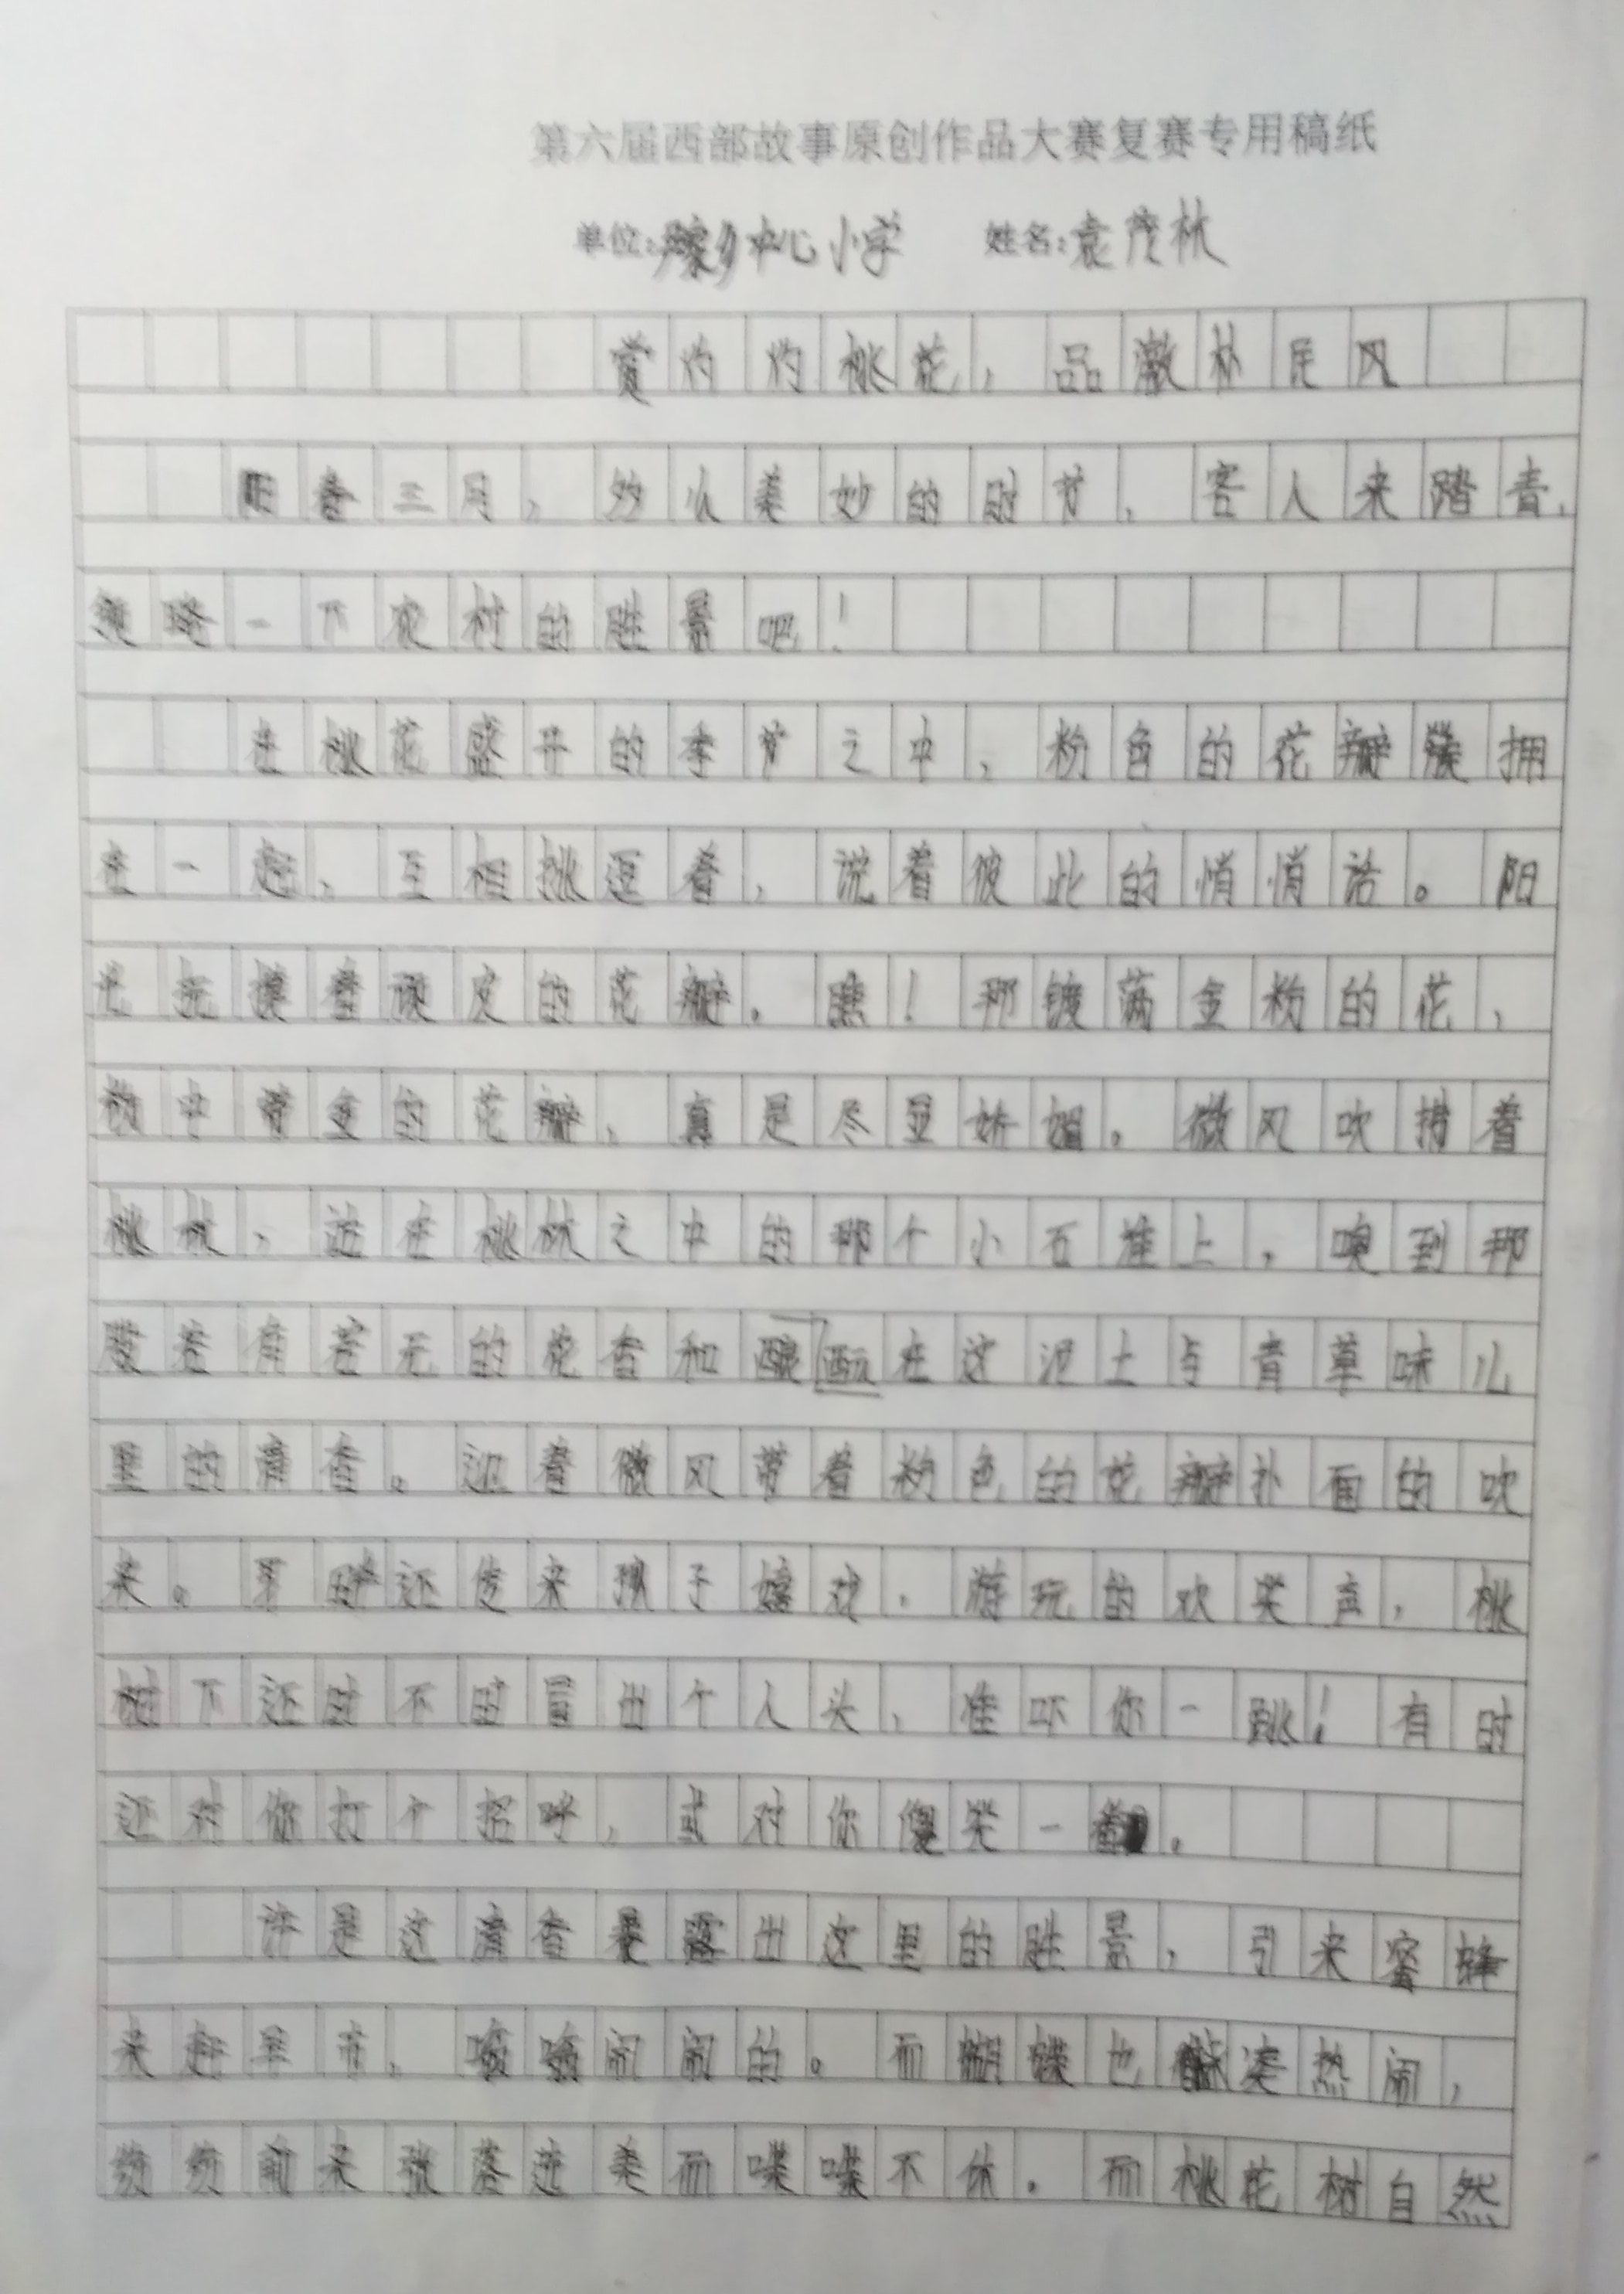 第六届西部故事原创作品大赛复赛专用稿纸
单位:乡中心小学 姓名:袁茂林
赏灼灼桃花,品澈朴民风
阳春三月,多么美妙的时节,客人来踏青,
领略一下农村的胜景吧!
在桃花盛开的季节之中,粉色的花瓣簇拥
在一起,互相挑逗着,说着彼此的悄悄话。阳
光抚摸着顽皮的花瓣。瞧!那镀满金粉的花,
粉中带金的花瓣,真是尽显娇媚。微风吹拂着
桃林,站在桃林之中的那个小石堆上,嗅到那
股若有若无的花香和酝在这泥土与青草味儿
里的清香。迎着微风带着粉色的花瓣扑面的吹
来。耳畔还传来孩子嬉戏,游玩的欢笑声,桃
树下还时不时冒出个人头,准吓你一跳!有时
还对你打个招呼,或对你傻笑一番。
许是这清香暴露出这里的胜景,引来蜜蜂
来赶早市,嗡嗡闹闹的。而蝴蝶也凑热闹,
纷纷前来张落这美而喋喋不休。而桃花树自然